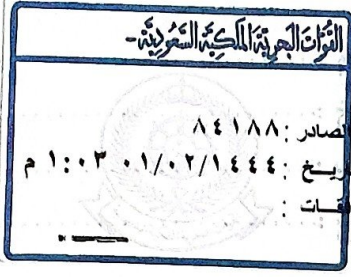 القوات البحرية الملكية السعودية-
صادر : ٨٤١٨٨
ريخ : ٠١/٠٢/١٤٤٤ ١:٠٣ م
قات :